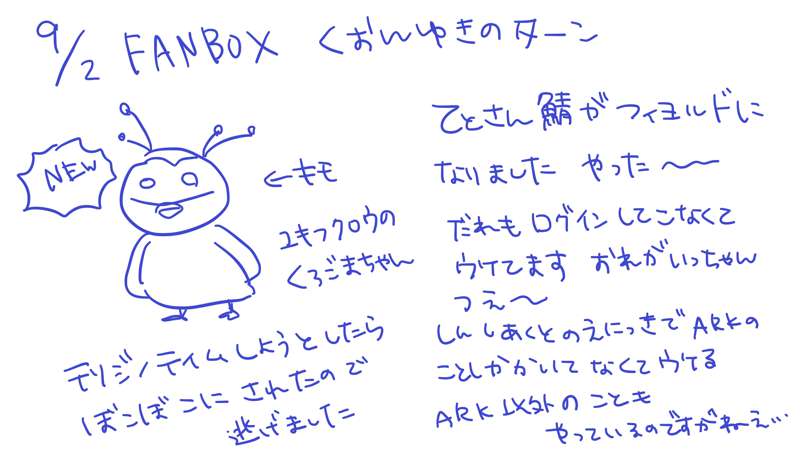 9/2 FANBOX くおんゆきのターン
NEW
←キモ
ユキフクロウの
くろごまちゃん
テリジノテイムしようとしたら
ぼこぼこにされたので
逃げました
てとさん鯖がフィヨルドに
なりました やった〜〜
だれもログインしてこなくて
ウケてます おれがいっちゃん
つえ〜
しんしあくとのえにっきでARKの
ことしかかいてなくてウケる
ARK以外のことも
やっているのですがねえ…